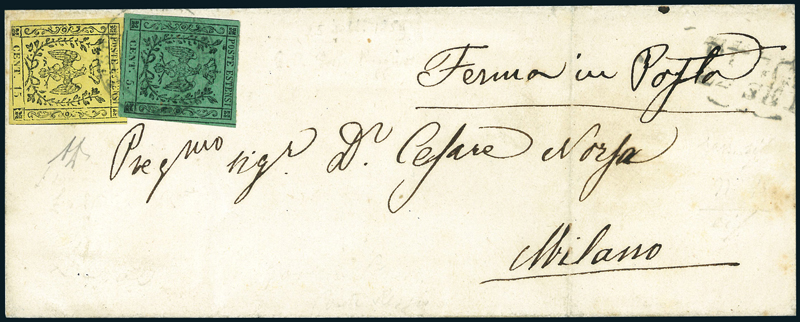 POSTE ESTENSI
CENT. 15.
POSTE ESTENSI
CENT. 5.
Ferma in Posta
Preg.mo Sig.r D.r Cesare Norsa
Milano